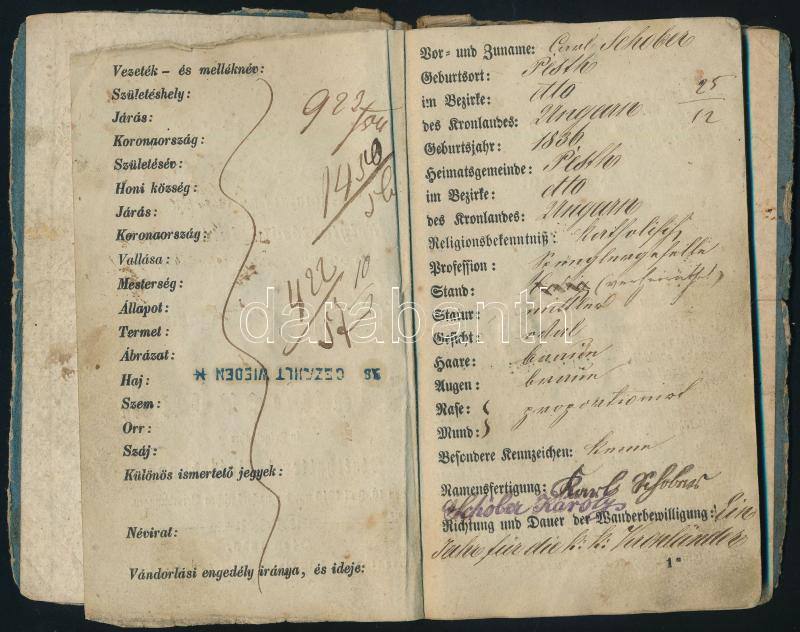 Vezeték- és melléknév:
Születéshely:
Járás:
Koronaország:
Születésév:
Honi község:
Járás:
Koronaország:
Vallása:
Mesterség:
Állapot:
Termet:
Ábrázat:
Haj:
Szem:
Orr:
Száj:
Különös ismertető jegyek:
Névirat:
Vándorlási engedély iránya, és ideje:
922
1450
422
GEZAHLT WIEDEN
Vor- und Zuname: Carl Schober
Geburtsort: Pesth
im Bezirke: dto
des Kronlandes: Ungarn
25
12
Geburtsjahr: 1836
Heimatsgemeinde: Pesth
im Bezirke: dto
des Kronlandes: Ungarn
Religionsbekenntniß: katholisch
Profession: Spenglergeselle
Stand: (verheirathet)
Statur: mittler
Gesicht: oval
Haare: braun
Augen: braun
Nase:
Mund: proportionirt
Besondere Kennzeichen: keine
Namensfertigung: Karl Schober
Schóber Károly
Richtung und Dauer der Wanderbewilligung: Ein
Jahr für die k. k. Kronländer
1*
darabanth